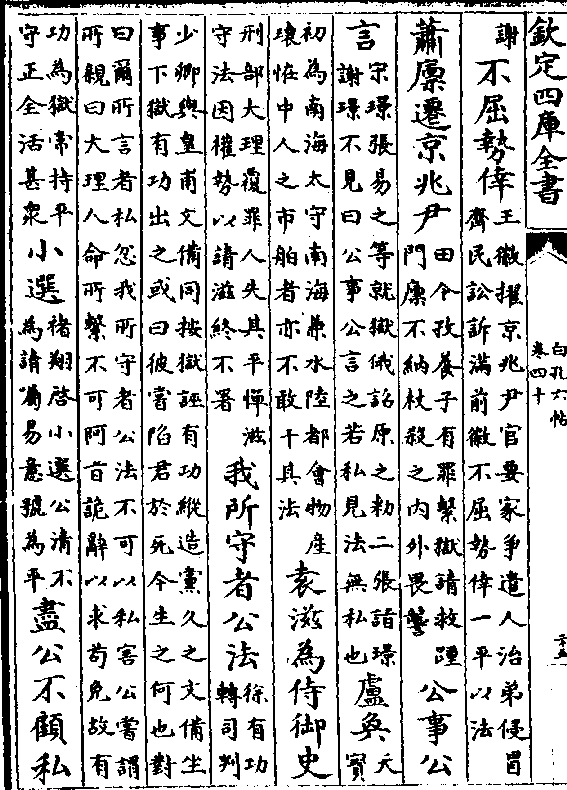 欽定四庫全書
白孔六帖
卷四十
謝 不屈勢倖 王徽擢京兆尹官要家爭遣人治第侵冒
齊民訟訴滿前徽不屈勢倖一平以法
蕭廩遷京兆尹 田令孜養子有罪繫獄請救踵
門廩不納杖殺之内外畏讋 公事公
言 宋璟張易之等就獄俄詔原之勑二張詣璟
謝璟不見曰公事公言之若私見法無私也 盧奐 天
寳
初為南海太守南海兼水陸都會物産
瓌恠中人之市舶者亦不敢干其法 袁滋為侍御史
刑部大理覆罪人失其平憚滋
守法因權勢以請滋終不署 我所守者公法 徐有功
轉司判
少卿與皇甫文備同按獄誣有功縱造黨久之文備坐
事下獄有功出之或曰彼嘗陷君於死今生之何也對
曰爾所言者私忿我所守者公法不可以私害公嘗謂
所親曰大理人命所繫不可阿旨詭辭以求苟免故有
功為獄常持平
守正全活甚衆 小選 禇翔啓小選公清不
為請屬易意號為平 盡公不顧私